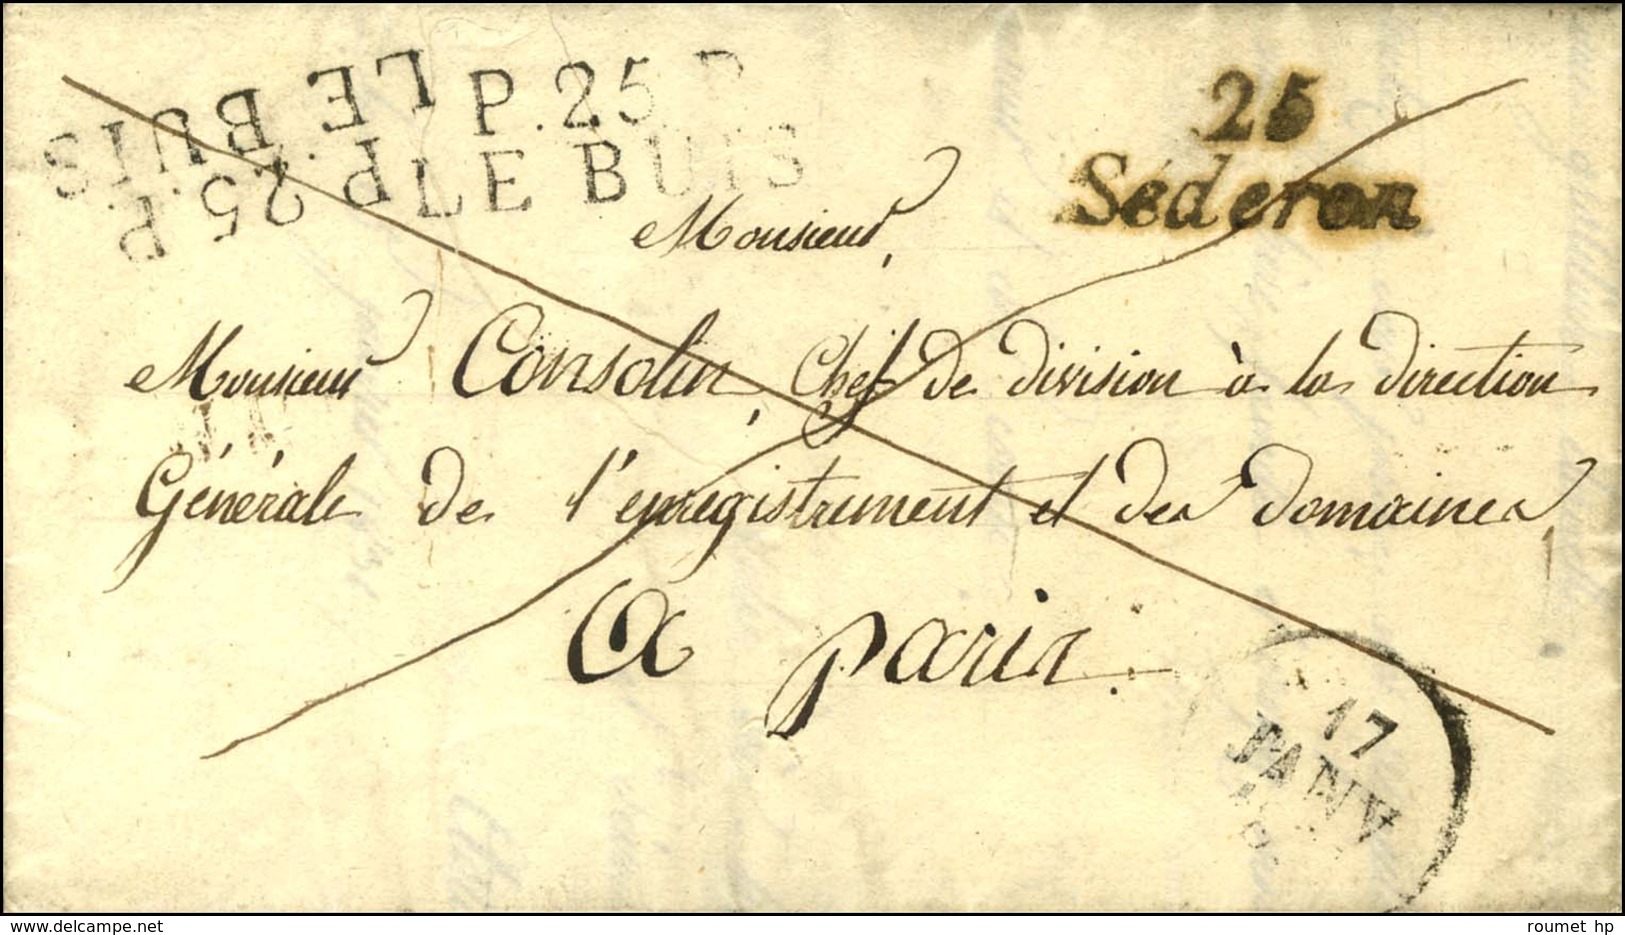 P. 25 P
LE BUIS
P. 25 P
LE BUIS
25
Séderon
Monsieur,
Monsieur Consolin, Chef de division à la direction
Générale de l'enregistrement et des domaines,
A paris.
17
JANV
roumet hp